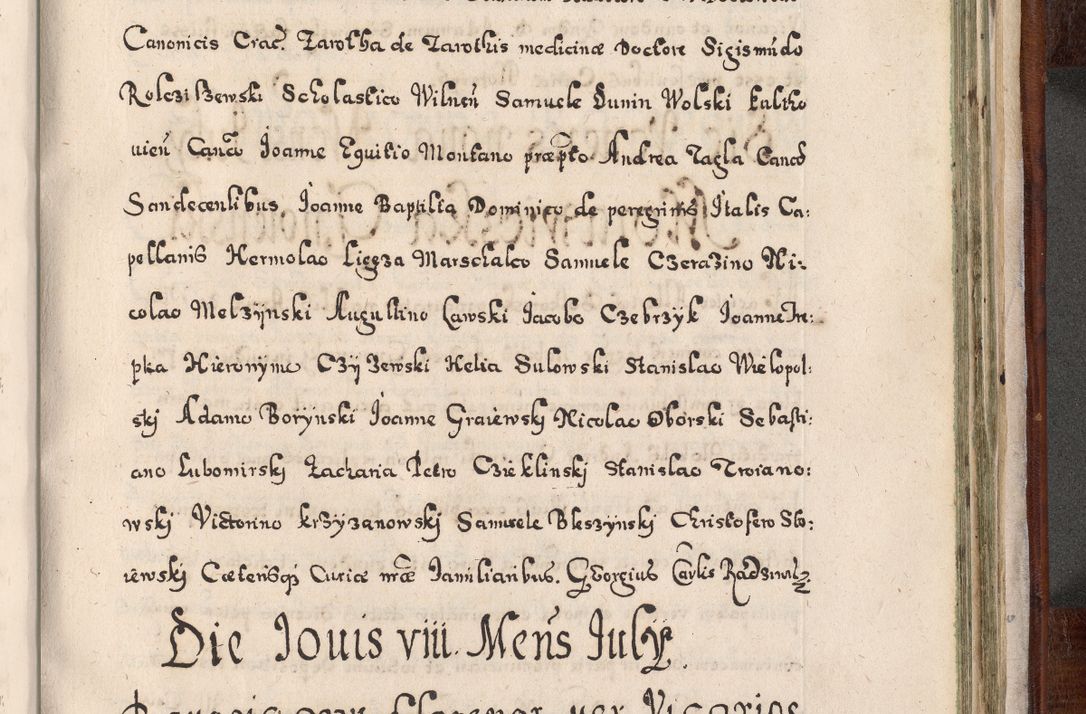 Canonicis Crac. Zarotha de Zarothis medicinæ Doctore Sigismũdo
Rolczizewski Scholastico Wilneñ Samuele Dunin Wolski
uieñ Canco Joanne Equitio Montano præpto Andrea Tagla Canco
Sandecensibus, Joanne Baptista Dominico de peregrinis Italis Ca:
pellanis Hermolao Ligęza Marschalco Samuele Czerazino Ni:
colao Melzynski Augustino Lawski Jacobo Czebrzyk Joanne Tre:
pka Hieronymo Czyzewski Helia Sulowski Stanislao Wielopol:
skj Adamo Borynski Joanne Graiewskj Nicolao Oborski Sebasti:
ano Lubomirskj Zacharia Petro Czieklinskj Stanislao Troiano:
wskj Victorino krzyzanowskj Samuele Bleszynskj Christofero Sto:
iewskj Cæterisqȝ Curiæ nræ Familiaribus. Georgius Carlis Radziwil
Die Jouis viii. Mens July.